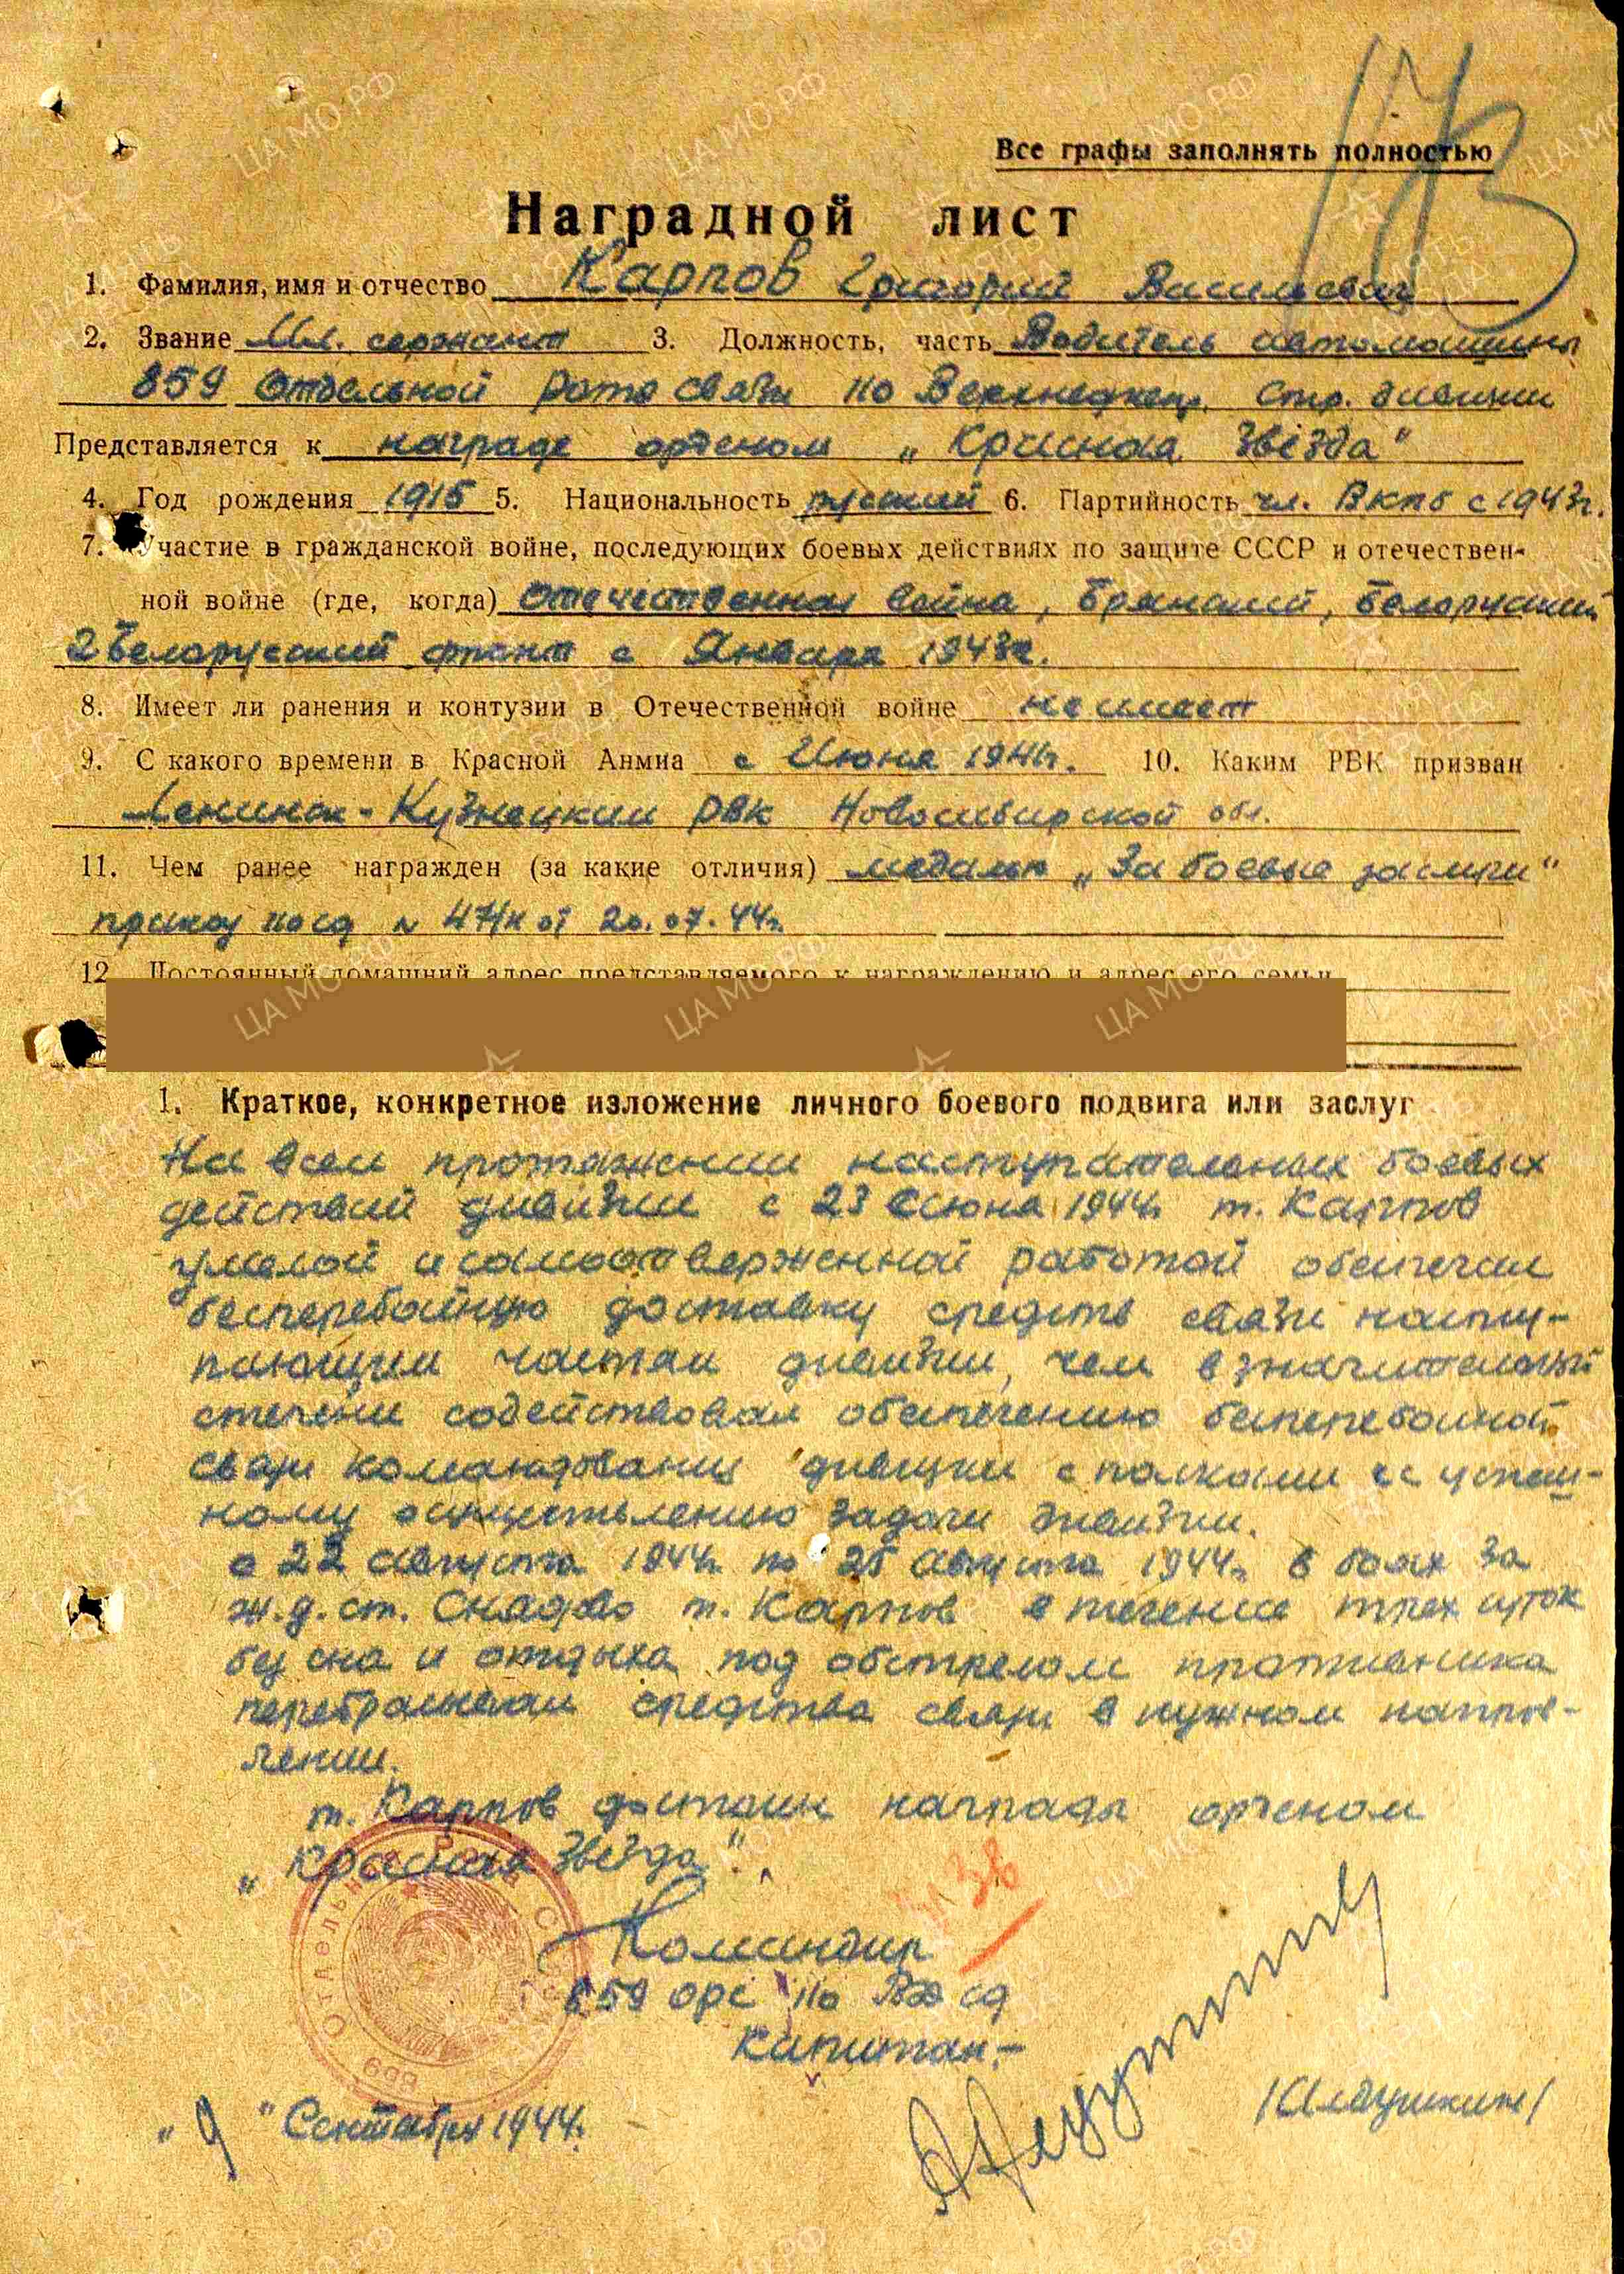 173
Все графы заполнять полностью
Наградной лист
1. Фамилия, имя и отчество Карпов Григорий Васильевич
2. Звание Мл. сержант 3. Должность, часть Водитель автомашины
859 Отдельной роты связи 110 Верхнеднепр. Стр. дивизии
Представляется к награде орденом „Красная Звезда"
4. Год рождения 1915 5. Национальность русский 6. Партийность чл. ВКПб с 1943г.
7. Участие в гражданской войне, последующих боевых действиях по защите СССР и отечествен-
ной войне (где, когда) Отечественная война, Брянский, Белорусский
2 Белорусский фронт с Января 1943г.
8. Имеет ли ранения и контузии в Отечественной войне не имеет
9. С какого времени в Красной Анмиа с Июня 1941г. 10. Каким РВК призван
Ленинск-Кузнецким РВК Новосибирской обл.
11. Чем ранее награжден (за какие отличия) медалью „За боевые заслуги"
приказ 110 сд № 47/н от 20.07.44г.
12. Постоянный домашний адрес представляемого к награждению и адрес его семьи
1. Краткое, конкретное изложение личного боевого подвига или заслуг
На всем протяжении наступательных боевых
действий дивизии с 23 июня 1944г. т. Карпов
умелой и самоотверженной работой обеспечил
бесперебойную доставку средств связи насту-
пающим частям дивизии, чем в значительной
степени содействовал обеспечению бесперебойной
связи командования дивизии с полками и успеш-
ному осуществлению задачи дивизии.
с 22 августа 1944г. по 25 августа 1944г. в боях за
ж.д. ст. Снядово т. Карпов в течение трех суток
без сна и отдыха под обстрелом противника
перебрасывал средства связи в нужном направ-
лении.
т. Карпов достоин награды орденом
„Красная Звезда".
Отдельная Рота С
859
Командир
859 орс 110 ВД сд
Капитан.-
„9" Сентября 1944г.